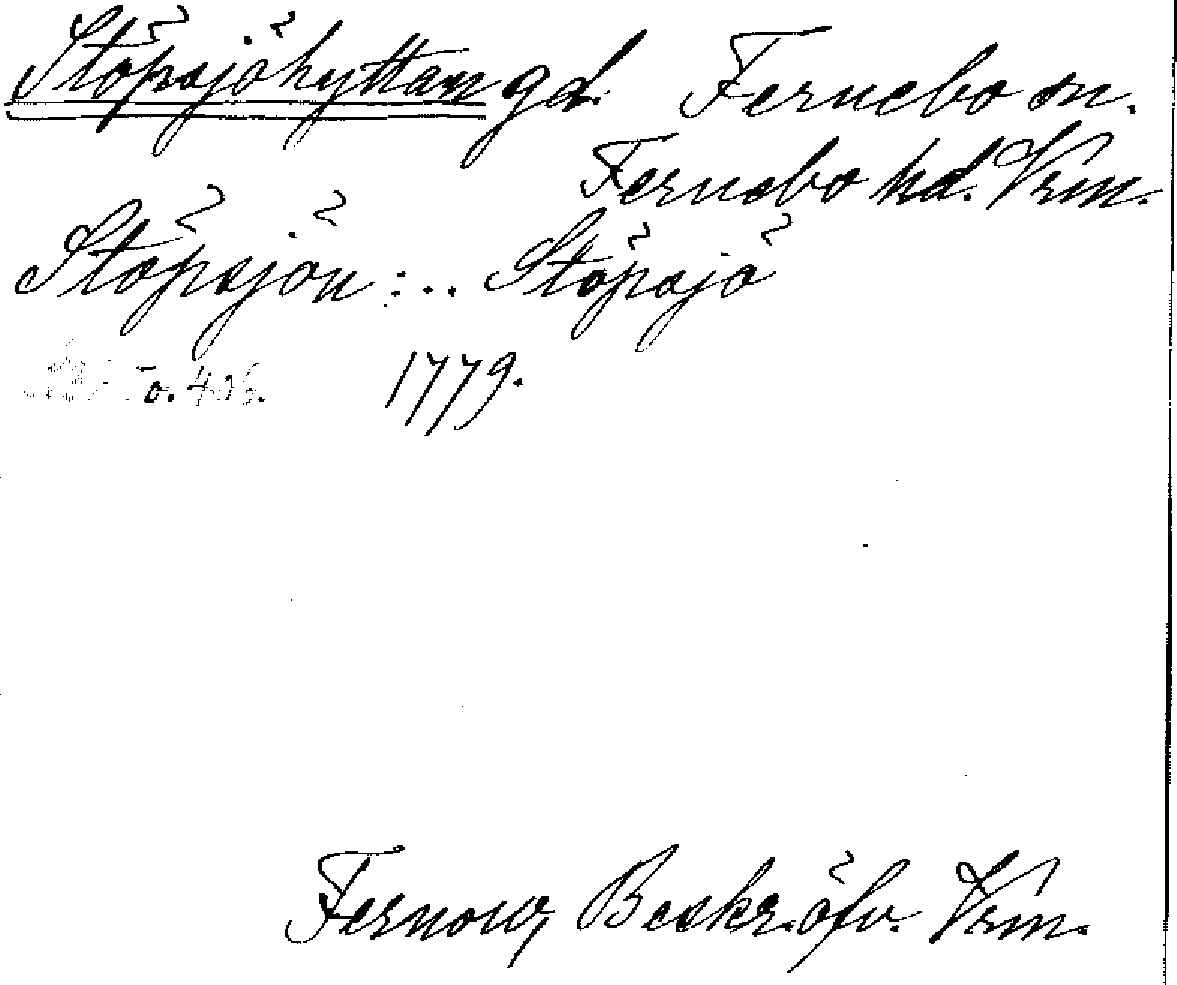 Stöpsjöhyttan gd. Fernebo sn.
Fernebo hd. Vrm.
Stöpsjön : .. Stöpsjö
To. 406. 1779.
Fernow, Beskr. öfv. Vrm.